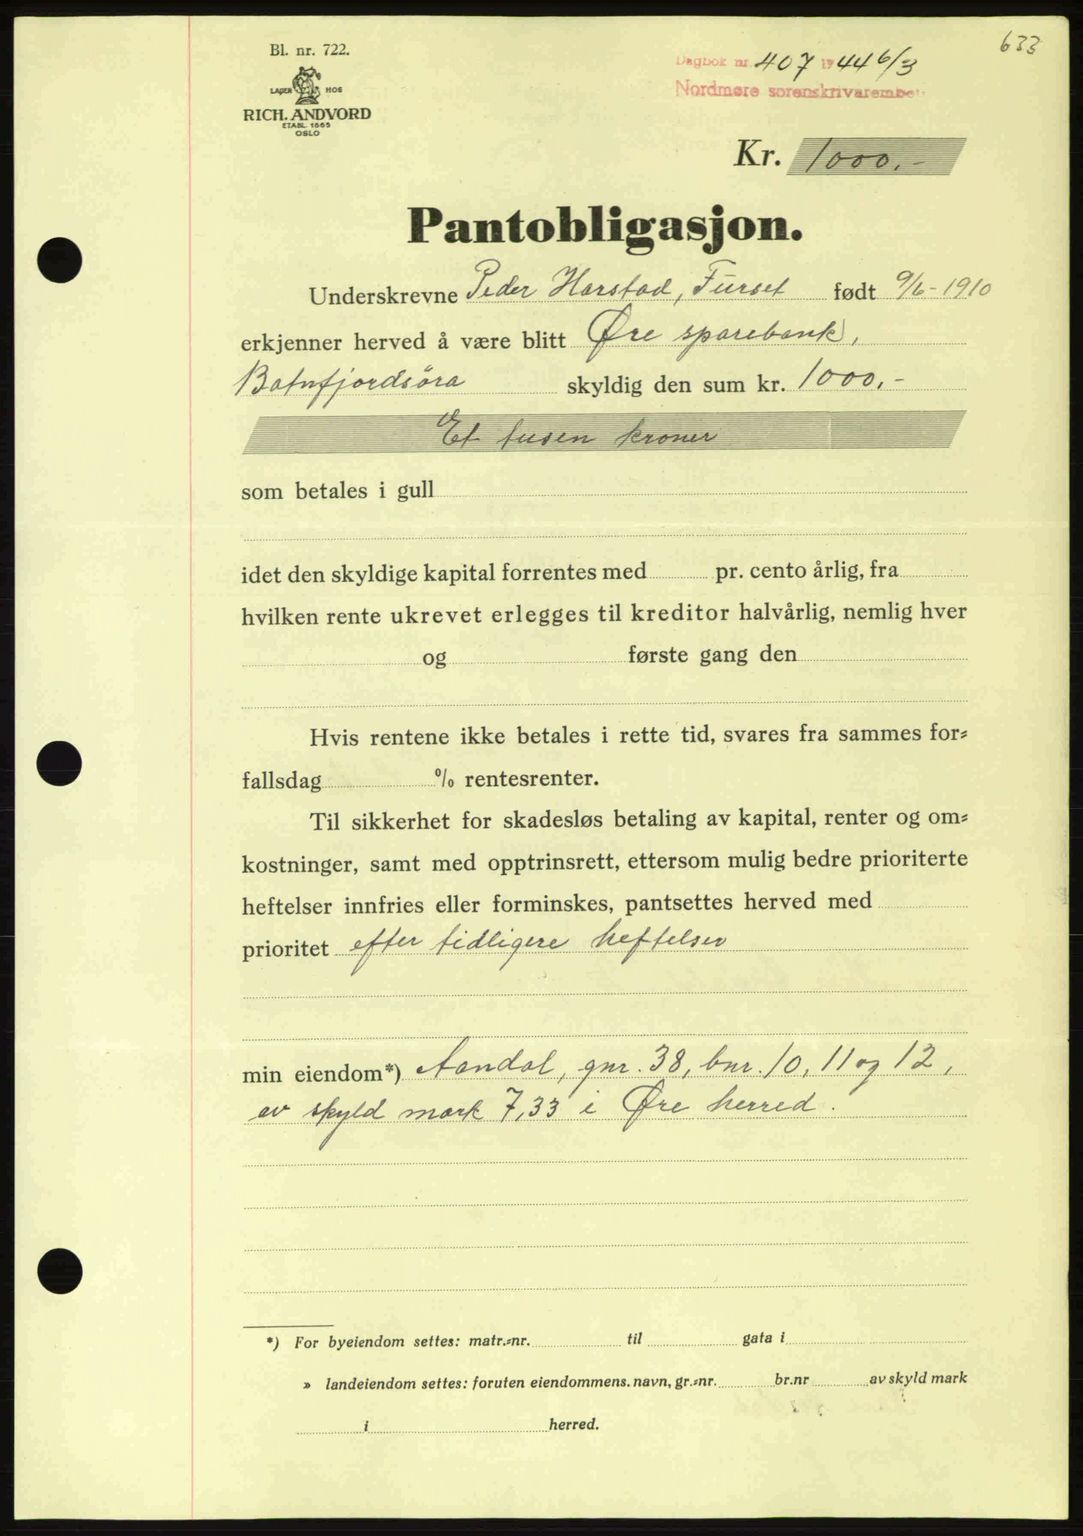 633
Bl. nr. 722.
LAGER HOS
RICH. ANDVORD
ETABL. 1865
OSLO
Dagbok nr. 407 1944 6/3
Nordmøre sorenskrivarembe
Kr. 1000.-
Pantobligasjon.
Underskrevne Peder Harstad, Furset født 9/6-1910
erkjenner herved å være blitt Øre sparebank,
Batnfjordsøra skyldig den sum kr. 1000,-
Et tusen kroner
som betales i gull
idet den skyldige kapital forrentes med pr. cento årlig, fra
hvilken rente ukrevet erlegges til kreditor halvårlig, nemlig hver
og første gang den
Hvis rentene ikke betales i rette tid, svares fra sammes for-
fallsdag % rentesrenter.
Til sikkerhet for skadesløs betaling av kapital, renter og om-
kostninger, samt med opptrinsrett, ettersom mulig bedre prioriterte
heftelser innfries eller forminskes, pantsettes herved med
prioritet efter tidligere heftelser
min eiendom*) Aandal, gnr. 38, bnr. 10, 11 og 12,
av skyld mark 7,33 i Øre herred.
*) For byeiendom settes: matr.-nr. til gata i
» landeiendom settes: foruten eiendommens. navn, gr.-nr. br.nr av skyld mark
i herred.